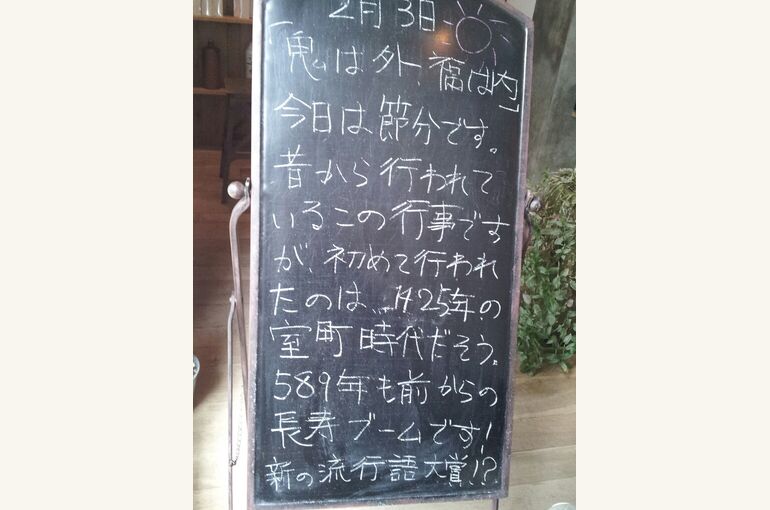 2月3日
「鬼は外、福は内」
今日は節分です。
昔から行われて
いるこの行事です
が、初めて行われ
たのは、1425年の
室町時代だそう。
589年も前からの
長寿ブームです!
新の流行語大賞!?